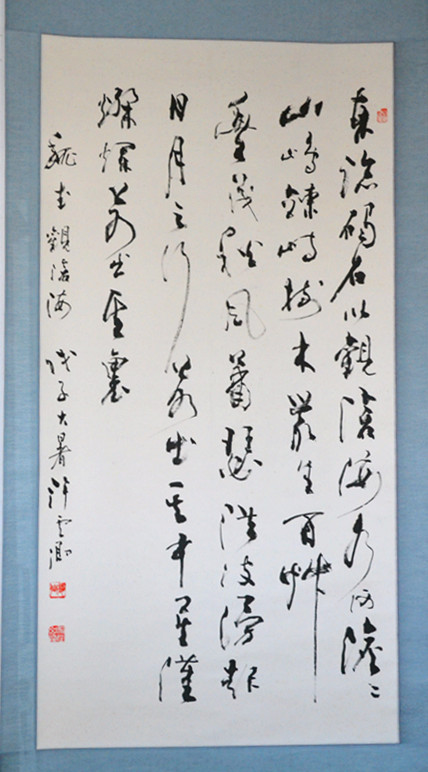 東臨碣石以觀滄海水何澹〻
山島竦峙樹木叢生百艸
豐茂秋風蕭瑟洪波湧起
日月之行若出其中星漢
燦爛若出其裏
魏武觀滄海 戊子大暑許雲卿